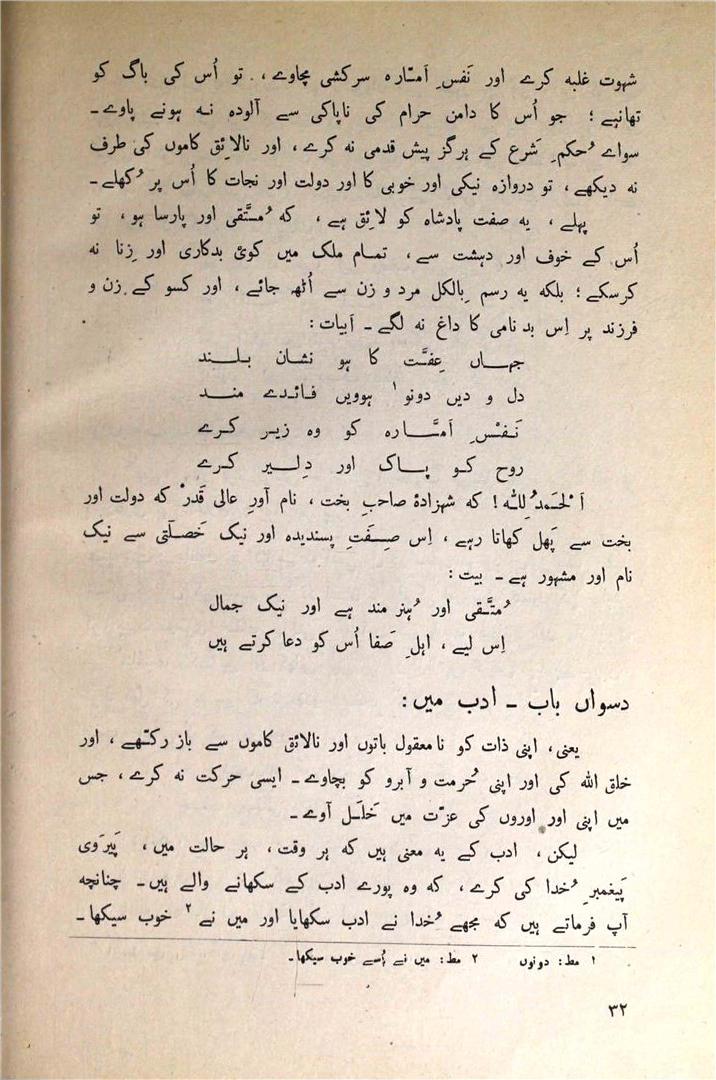 شہوت غلبہ کرے اور نَفسِ اَمّارہ سرکشی مچاوے ، تو اُس کی باگ کو
تھانبے ؛ جو اُس کا دامن حرام کی ناپاکی سے آلودہ نہ ہونے پاوے ـ
سواے حُکمِ شَرع کے ہرگز پیش قدمی نہ کرے ، اور نالائق کاموں کی طرف
نہ دیکھے ، تو دروازہ نیکی اور خوبی کا اور دولت اور نجات کا اُس پر کُھلے ـ
پہلے ، یہ صفت پادشاہ کو لائق ہے ، کہ مُتَّقی اور پارسا ہو ، تو
اُس کے خوف اور دہشت سے ، تمام ملک میں کوئ بدکاری اور زِنا نہ
کرسکے ؛ بلکہ یہ رسم بِالکل مرد و زن سے اُٹھ جائے ، اور کسو کے زن و
فرزند پر اِس بدنامی کا داغ نہ لگے ـ اَبیات :
جہاں عِفَّت کا ہو نشان بلند
دل و دیں دونو ۱ ہوویں فائدے مند
نَفْسِ اَمّارہ کو وہ زیر کرے
روح کو پاک اور دِلیر کرے
اَلْحَمدُ لِلّٰہ ! کہ شہزادۂ صاحبِ بخت ، نام آورِ عالی قَدْر کہ دولت اور
بخت سے پَھل کھاتا رہے ، اِس صِفَتِ پسندیدہ اور نیک خَصلَتی سے نیک
نام اور مشہور ہے ـ بیت :
مُتَّقی اور ہُنر مند ہے اور نیک جمال
اِس لیے ، اہلِ صَفا اُس کو دعا کرتے ہیں
دسواں باب ـ ادب میں :
یعنی ، اپنی ذات کو نامعقول باتوں اور نالائق کاموں سے باز رکھے ، اور
خلق اللہ کی اور اپنی حُرمت و آبرو کو بچاوے ـ ایسی حرکت نہ کرے ، جس
میں اپنی اور اوروں کی عزّت میں خَلَل آوے ـ
لیکن ، ادب کے یہ معنی ہیں کہ ہر وقت ، ہر حالت میں ، پَیرَوی
پَیغمبرِ خُدا کی کرے ، کہ وہ پورے ادب کے سکھانے والے ہیں ـ چنانچہ
آپ فرماتے ہیں کہ مجھے خُدا نے ادب سکھایا اور میں نے ۲ خوب سیکھا ـ
۱ مط : دونوں ۲ مط : میں نے اُسے خوب سیکھا ـ
۳۲